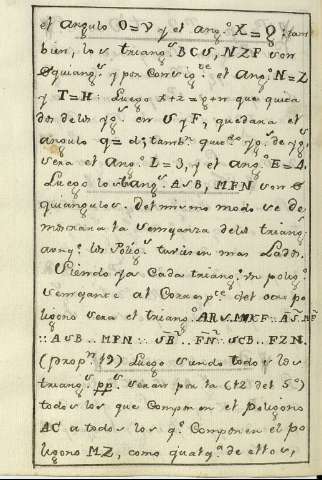 el angulo O=V y el ang.º X=Q; tam
bien, los triang.s BCS, NZF son
equiang.s y por Consig.te el ang.º N=Z
y T=H. Luego x+z=g+n que quita
dos delos yg.s en S y F, quedara el
angulo q=d; tamb.n quit.do yg.s de yg.s
sera el ang.º L=3, y el ang.º E=4.
Luego los triang.s ASB, MFN son e
quiangulos. Del mismo modo se de
mostrara la semejanza delos triang.s
aunq.e los Polig.s tuviesen mas Lados.
Siendo ya Cada triang.º un polig.º
semejante al Corresp.te del otro po
ligono sera el triang.º ARS. MKF :: AS. MF
:: ASB .. MFN :: SB .. FN :: SCB .. FZN.
(prop.n 19) Luego siendo todos los
triang.s pp.s seran por la (12 del 5.º)
todos los que Compon en el poligono
AC a todos los q.e Componen el po
ligono MZ, como qualq.a de ellos,